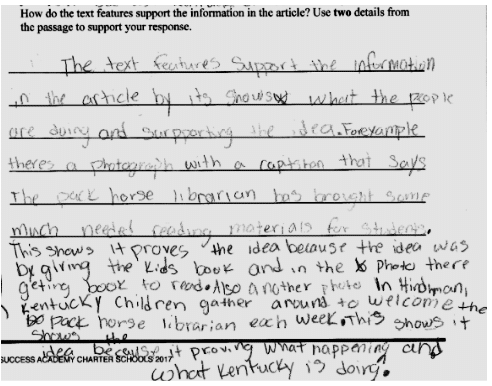 How do the text features support the information in the article? Use two details from
the passage to support your response.
The text features support the information
in the article by its shows what the people
are duing and surpporting the idea. Forexample
theres a photograph with a captshon that says
The pack horse librarian has brought some
much needed reading materials for students.
This shows it proves the idea because the idea was
by giving the kids book and in the photo there
geting book to read. Also another photo In Hindman,
Kentucky Children gather around to welcome the
pack horse librarian each week. This shows it
shows the
idea because it proving what happening and
SUCCESS ACADEMY CHARTER SCHOOLS 2017
what Kentucky is doing.